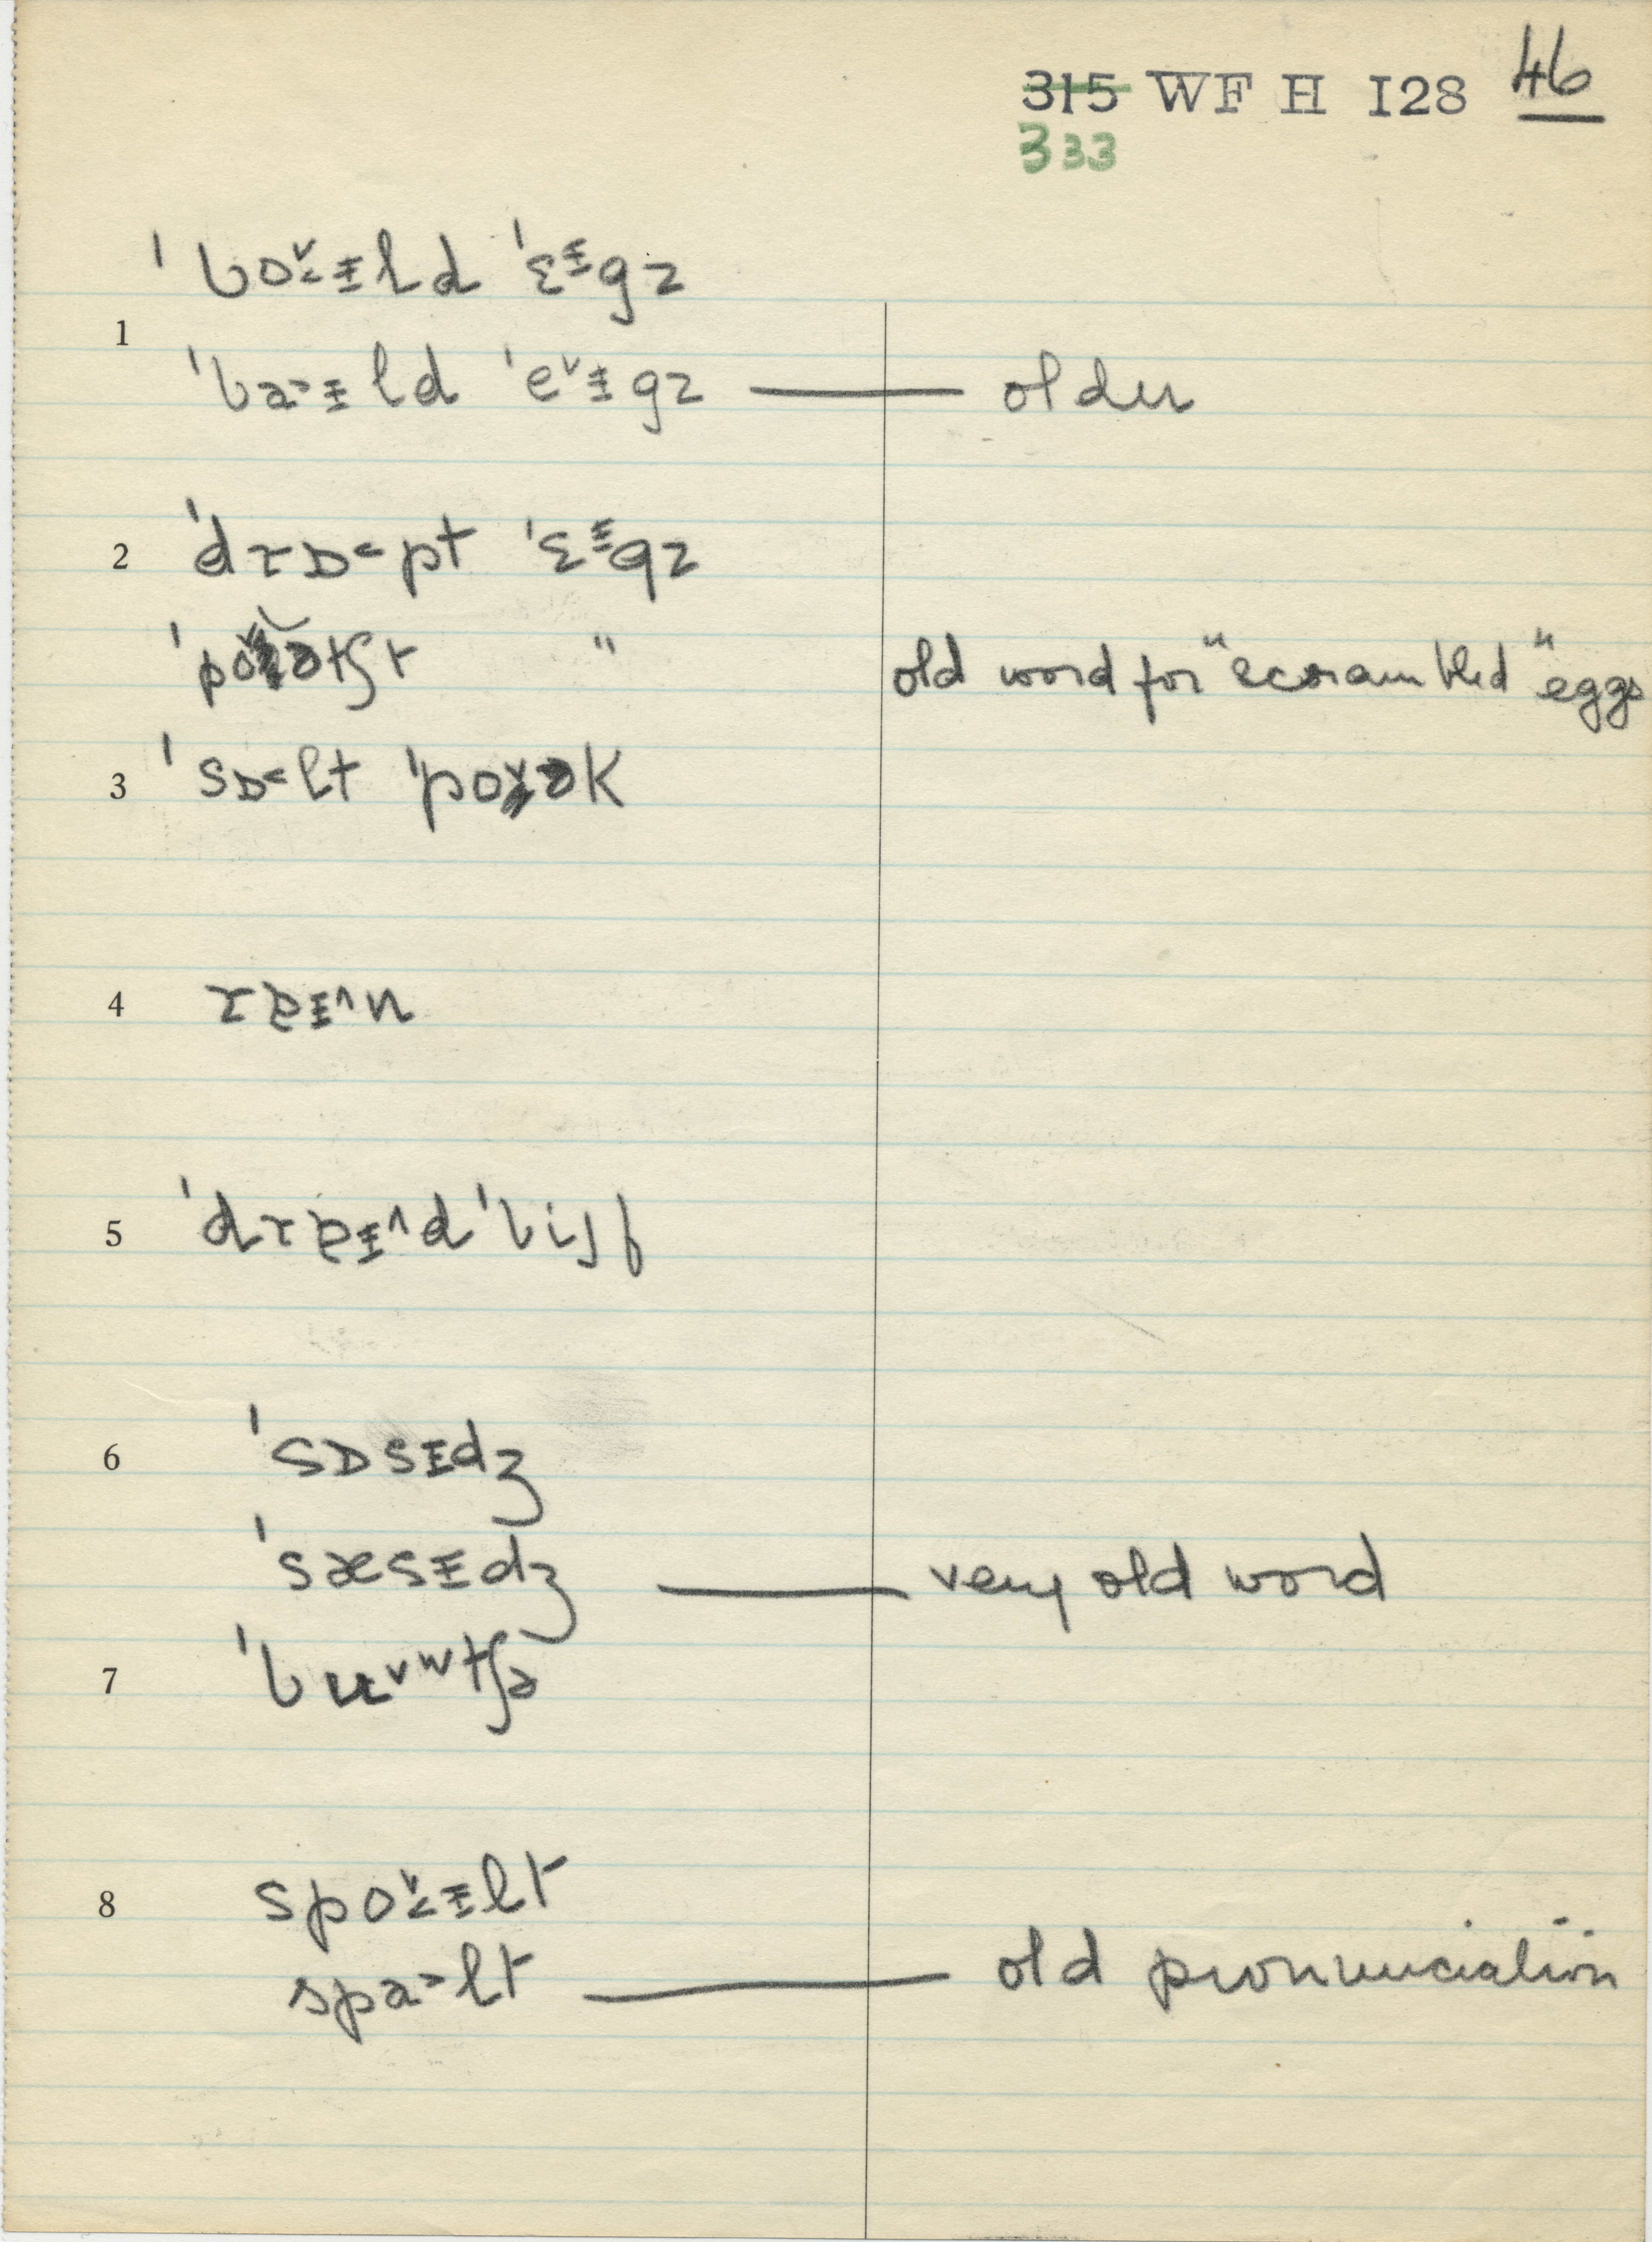 315 WF H 128 46
333
ˈbɔ˅˂ɨld ˈɛᵻgz
1
ˈba˃ɨld ˈe˅ɨgz — older
2 ˈdrɒ˂pt ˈɛᵻgz
ˈpo ətʃt " old word for "scrambled" eggs
3 ˈsɒ˂lt ˈpo ək
4 rɐɪ˄n
5 ˈdrɐɪ˄d ˈbijf
6 ˈsɒsɪdʒ
ˈsæsɪdʒ — very old word
7 ˈbu˅ʷtʃə
8 spɔ˅˂ɨlt
spa˃lt — old pronunciation